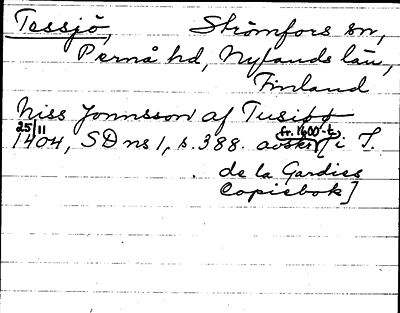 Tessjö, Strömfors sn,
Pernå hd, Nylands län,
Finland
Niss Jonnsson af Tusibø
25/11
1404, SD ns 1, s. 388. avskr. fr. 1600-t. [i J.
de la Gardies
Copiebok]